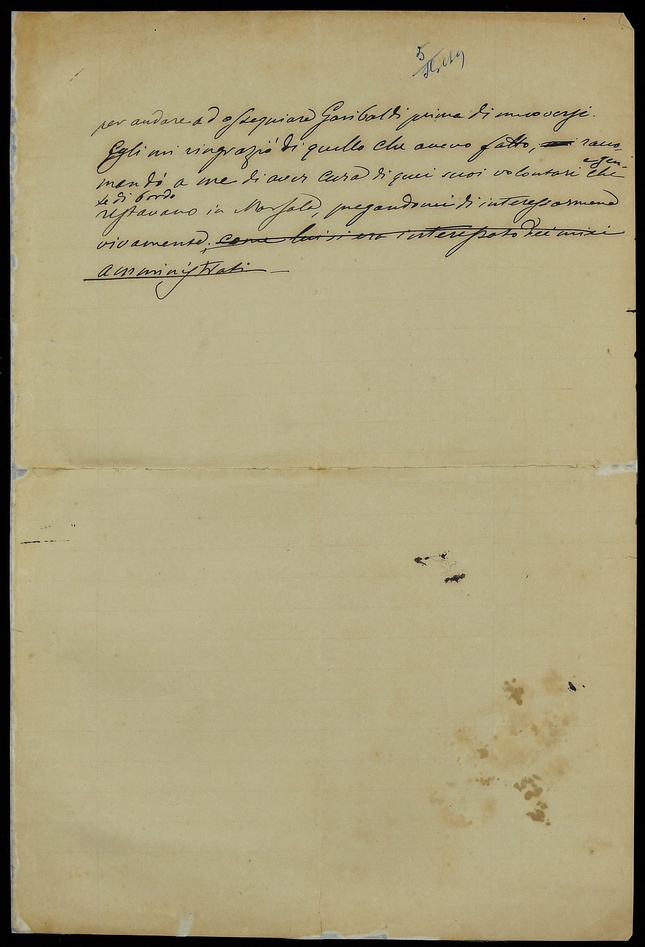 5
per andare ad ossequiare Garibaldi prima di muoversi.
Egli mi ringraziò di quello che avevo fatto, racco
mandò a me di aver cura di quei suoi volontari che
restavano in Marsala, pregandomi di interessarmene
vivamente; come lui si era interessato dei miei
amministrati